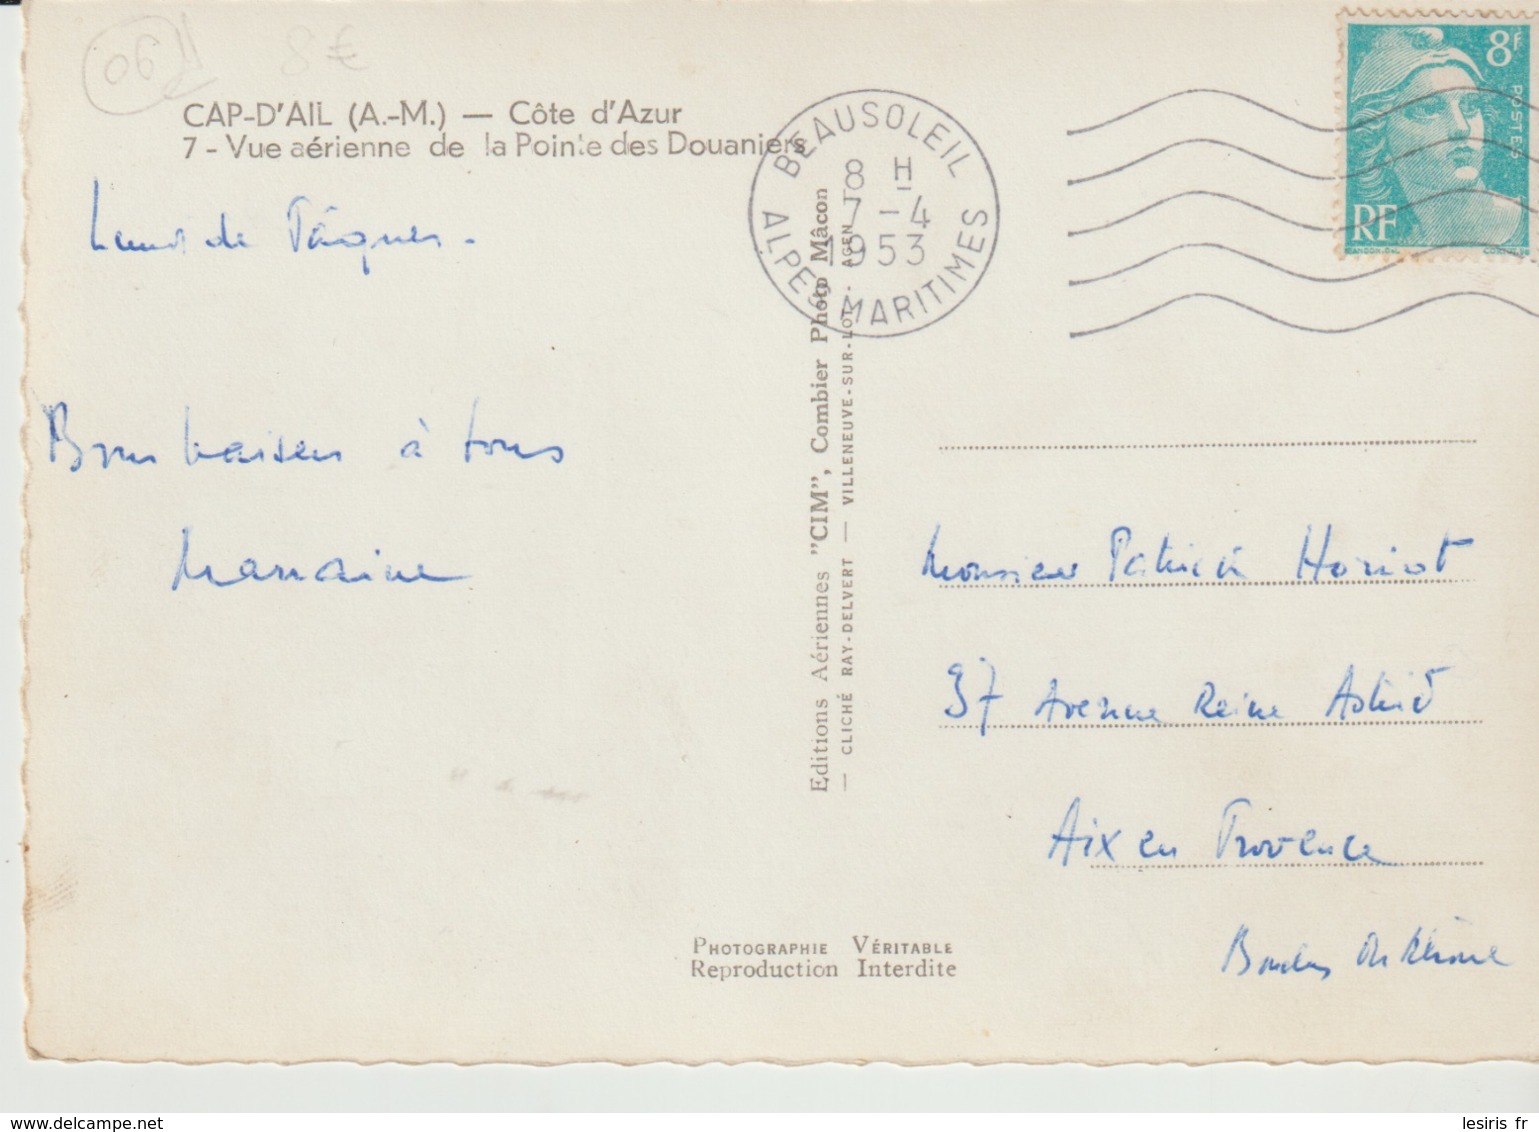 06
8 €
CAP-D'AIL (A.-M.) — Côte d'Azur
7 - Vue aérienne de la Pointe des Douaniers
Lundi de Pâques.
Bons baisers à tous
Marraine
BEAUSOLEIL
8 H
7 - 4
1953
ALPES MARITIMES
8F
POSTES
RF
GANDON.DEL
Editions Aériennes "CIM", Combier Photo Mâcon
— CLICHÉ RAY-DELVERT — VILLENEUVE-SUR-LOT
Monsieur Patrick Horiot
37 Avenue Reine Astrid
Aix en Provence
Bouches du Rhône
PHOTOGRAPHIE VÉRITABLE
Reproduction Interdite
lesiris fr